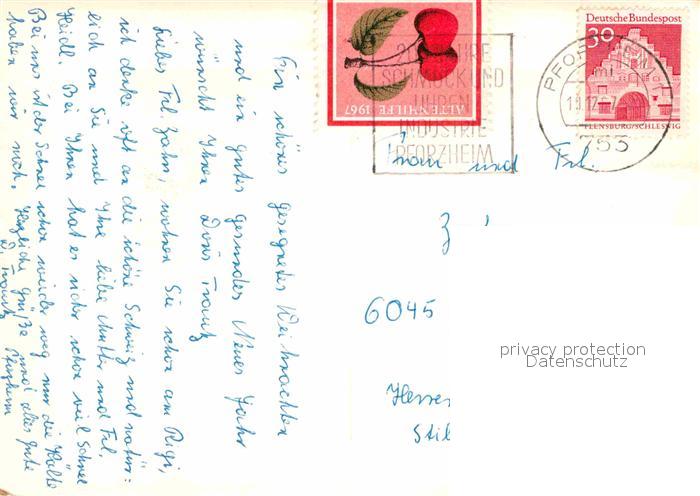 Ein schönes gesegnetes Weihnachten
und ein gutes gesundes Neues Jahr
wünscht Ihnen Doris Trautz
Liebes Frl. Zahn, wohnen Sie schon am Rigi,
ich denke oft an die schöne Schweiz und natür=
lich an Sie und Ihre liebe Mutter und Frl.
Heidi. Bei Ihnen hat es sicher schon viel Schnee
Bei uns ist der Schnee schon wieder weg nur die Kälte
haben wir noch. Herzliche Grüße und alles gute
D. Trautz Pforzheim
ALTENHILFE 1967
200 JAHRE
SCHMUCK UND
UHREN
INDUSTRIE
PFORZHEIM
PFORZHEIM
753
Deutsche Bundespost
30
FLENSBURG/SCHLESWIG
Frau und Frl.
Z
6045
privacy protection
Datenschutz